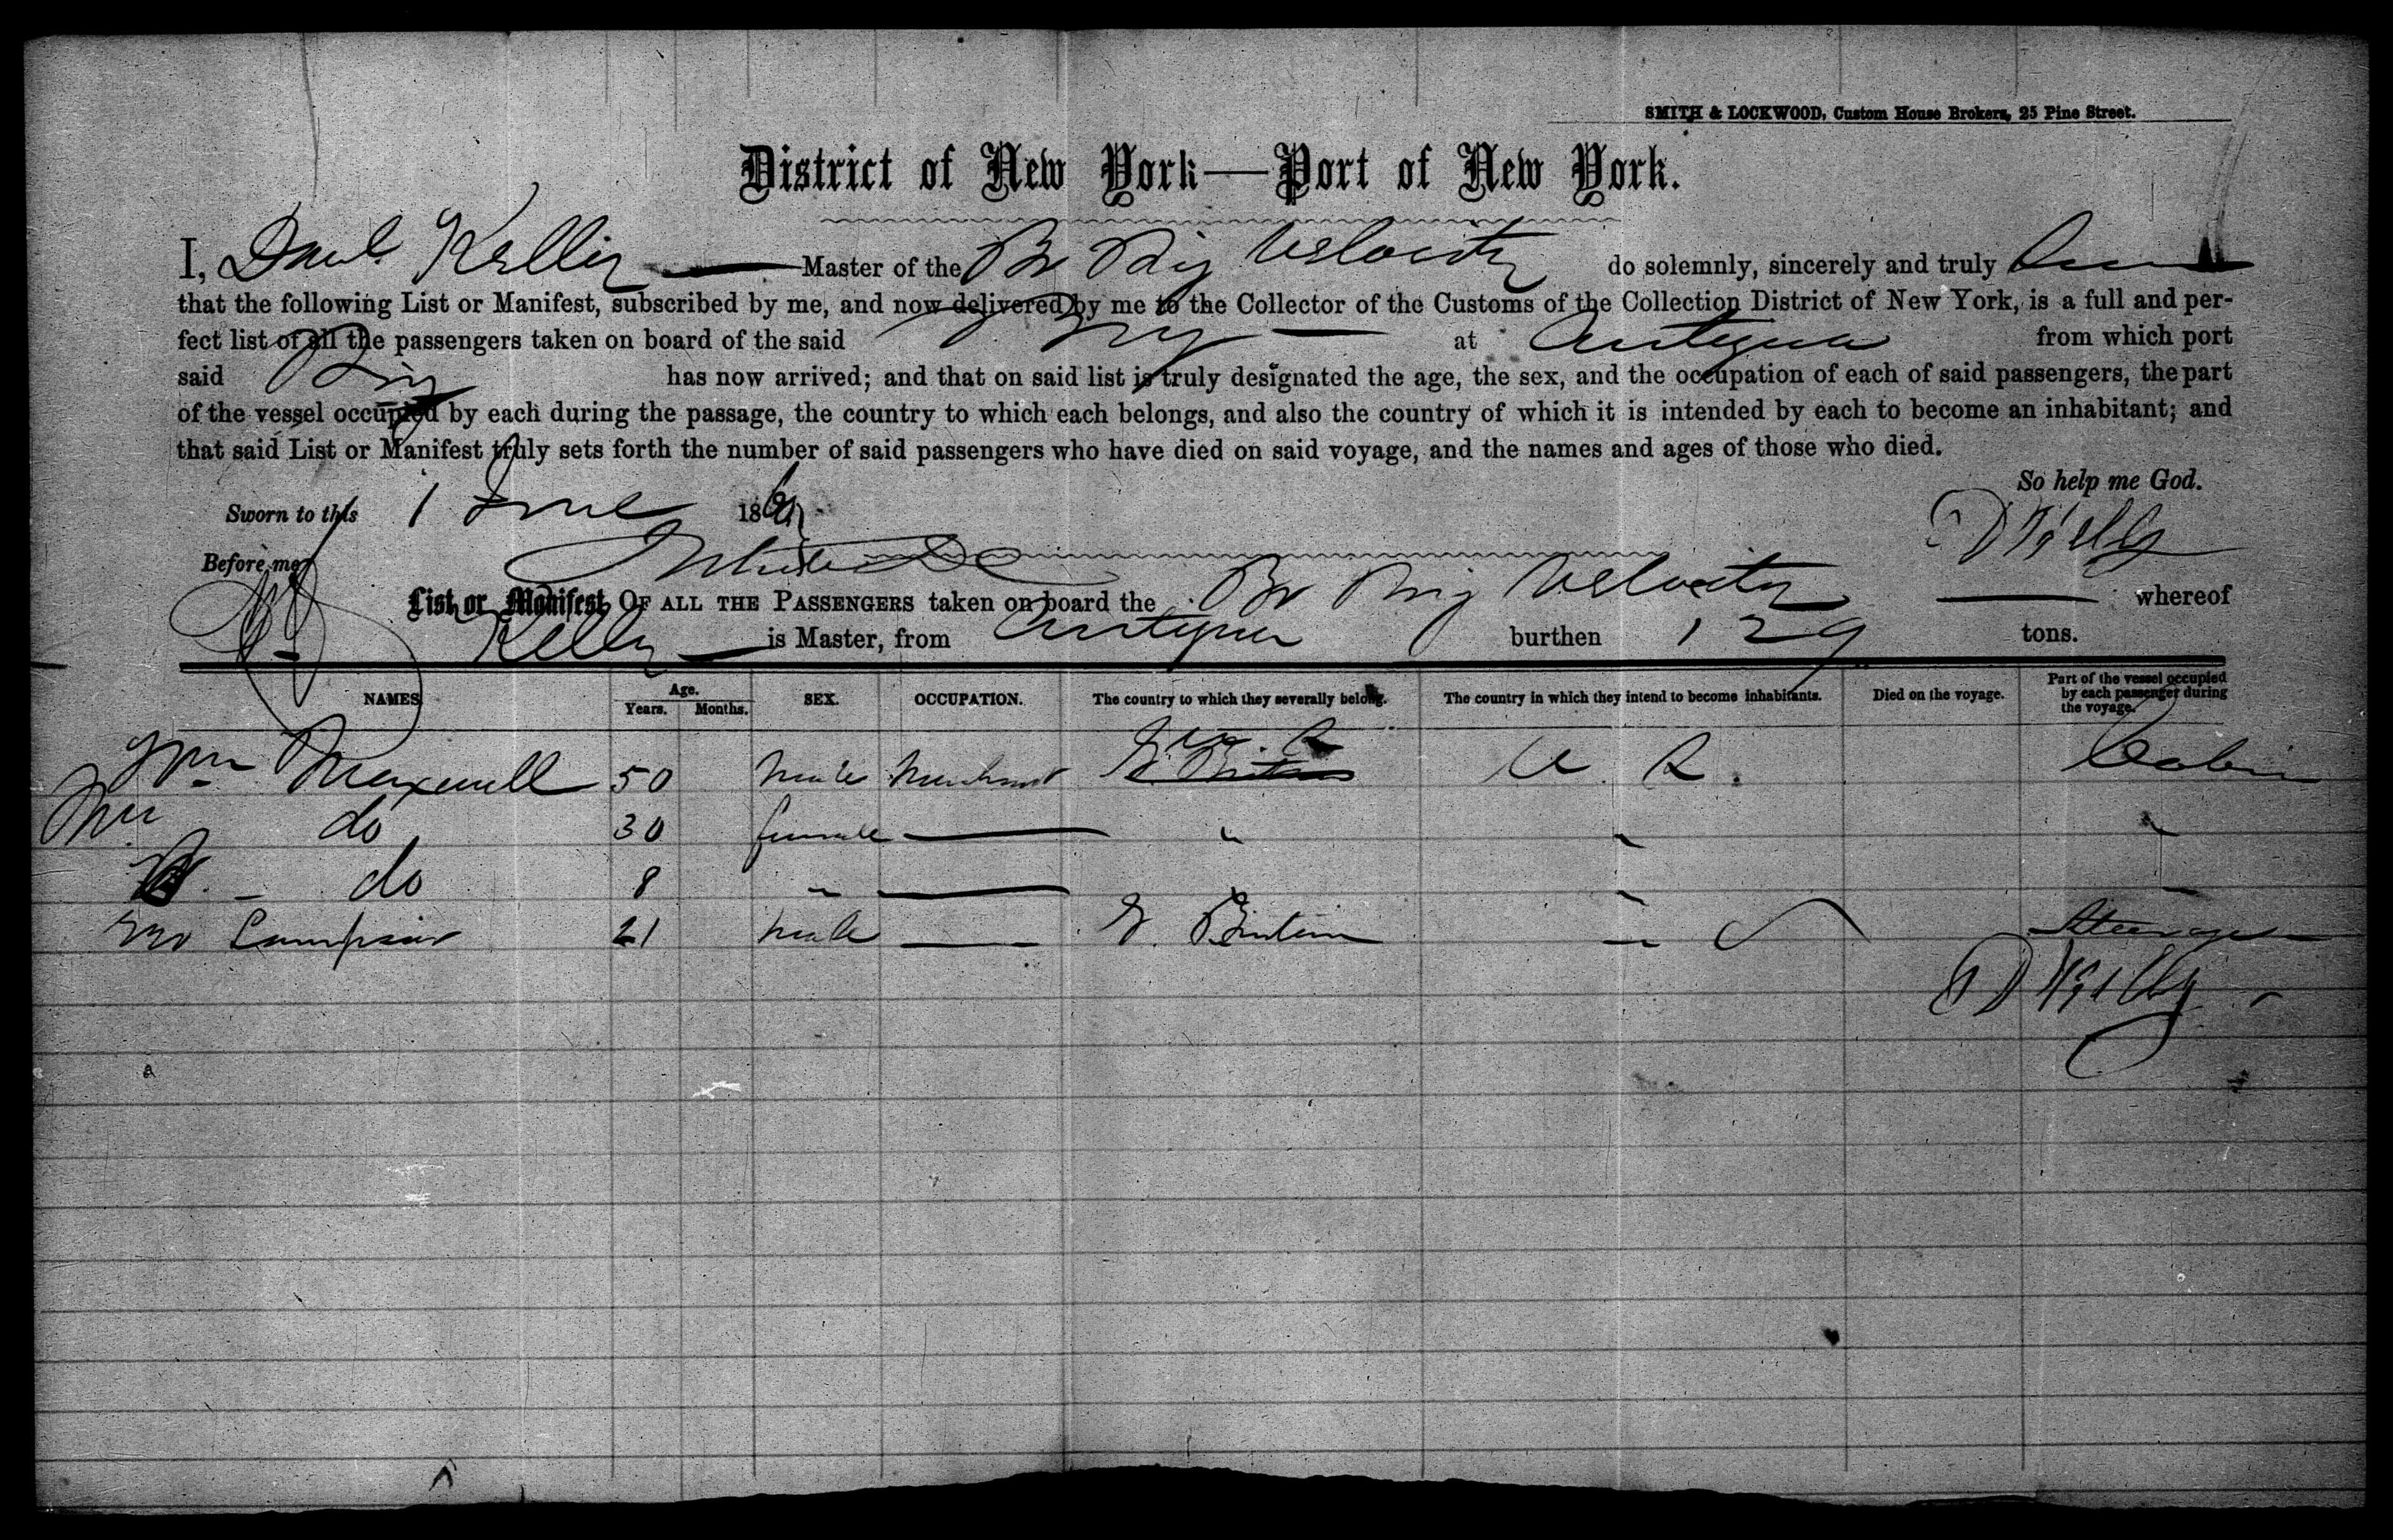 SMITH & LOCKWOOD, Custom House Brokers, 25 Pine Street.
District of New York—Port of New York.
I, Danl. Kelly Master of the Br Brig Velocity do solemnly, sincerely and truly
that the following List or Manifest, subscribed by me, and now delivered by me to the Collector of the Customs of the Collection District of New York, is a full and per-
fect list of all the passengers taken on board of the said Brig at Antigua from which port
said Brig has now arrived; and that on said list is truly designated the age, the sex, and the occupation of each of said passengers, the part
of the vessel occupied by each during the passage, the country to which each belongs, and also the country of which it is intended by each to become an inhabitant; and
that said List or Manifest truly sets forth the number of said passengers who have died on said voyage, and the names and ages of those who died.
So help me God.
Sworn to this 1 June 186
D Kelly
Before me
List or Manifest OF ALL THE PASSENGERS taken on board the Br Brig Velocity whereof
Kelly is Master, from Antigua burthen 129 tons.
NAMES Age. Years. Months. SEX. OCCUPATION. The country to which they severally belong. The country in which they intend to become inhabitants. Died on the voyage. Part of the vessel occupied by each passenger during the voyage.
Wm Maxwell 50 Male Merchant G Britain U. S. Cabin
Mrs do 30 female — " " "
do 8 " — " "
Lampson 21 Male — G. Britain " Steerage
D Kelly